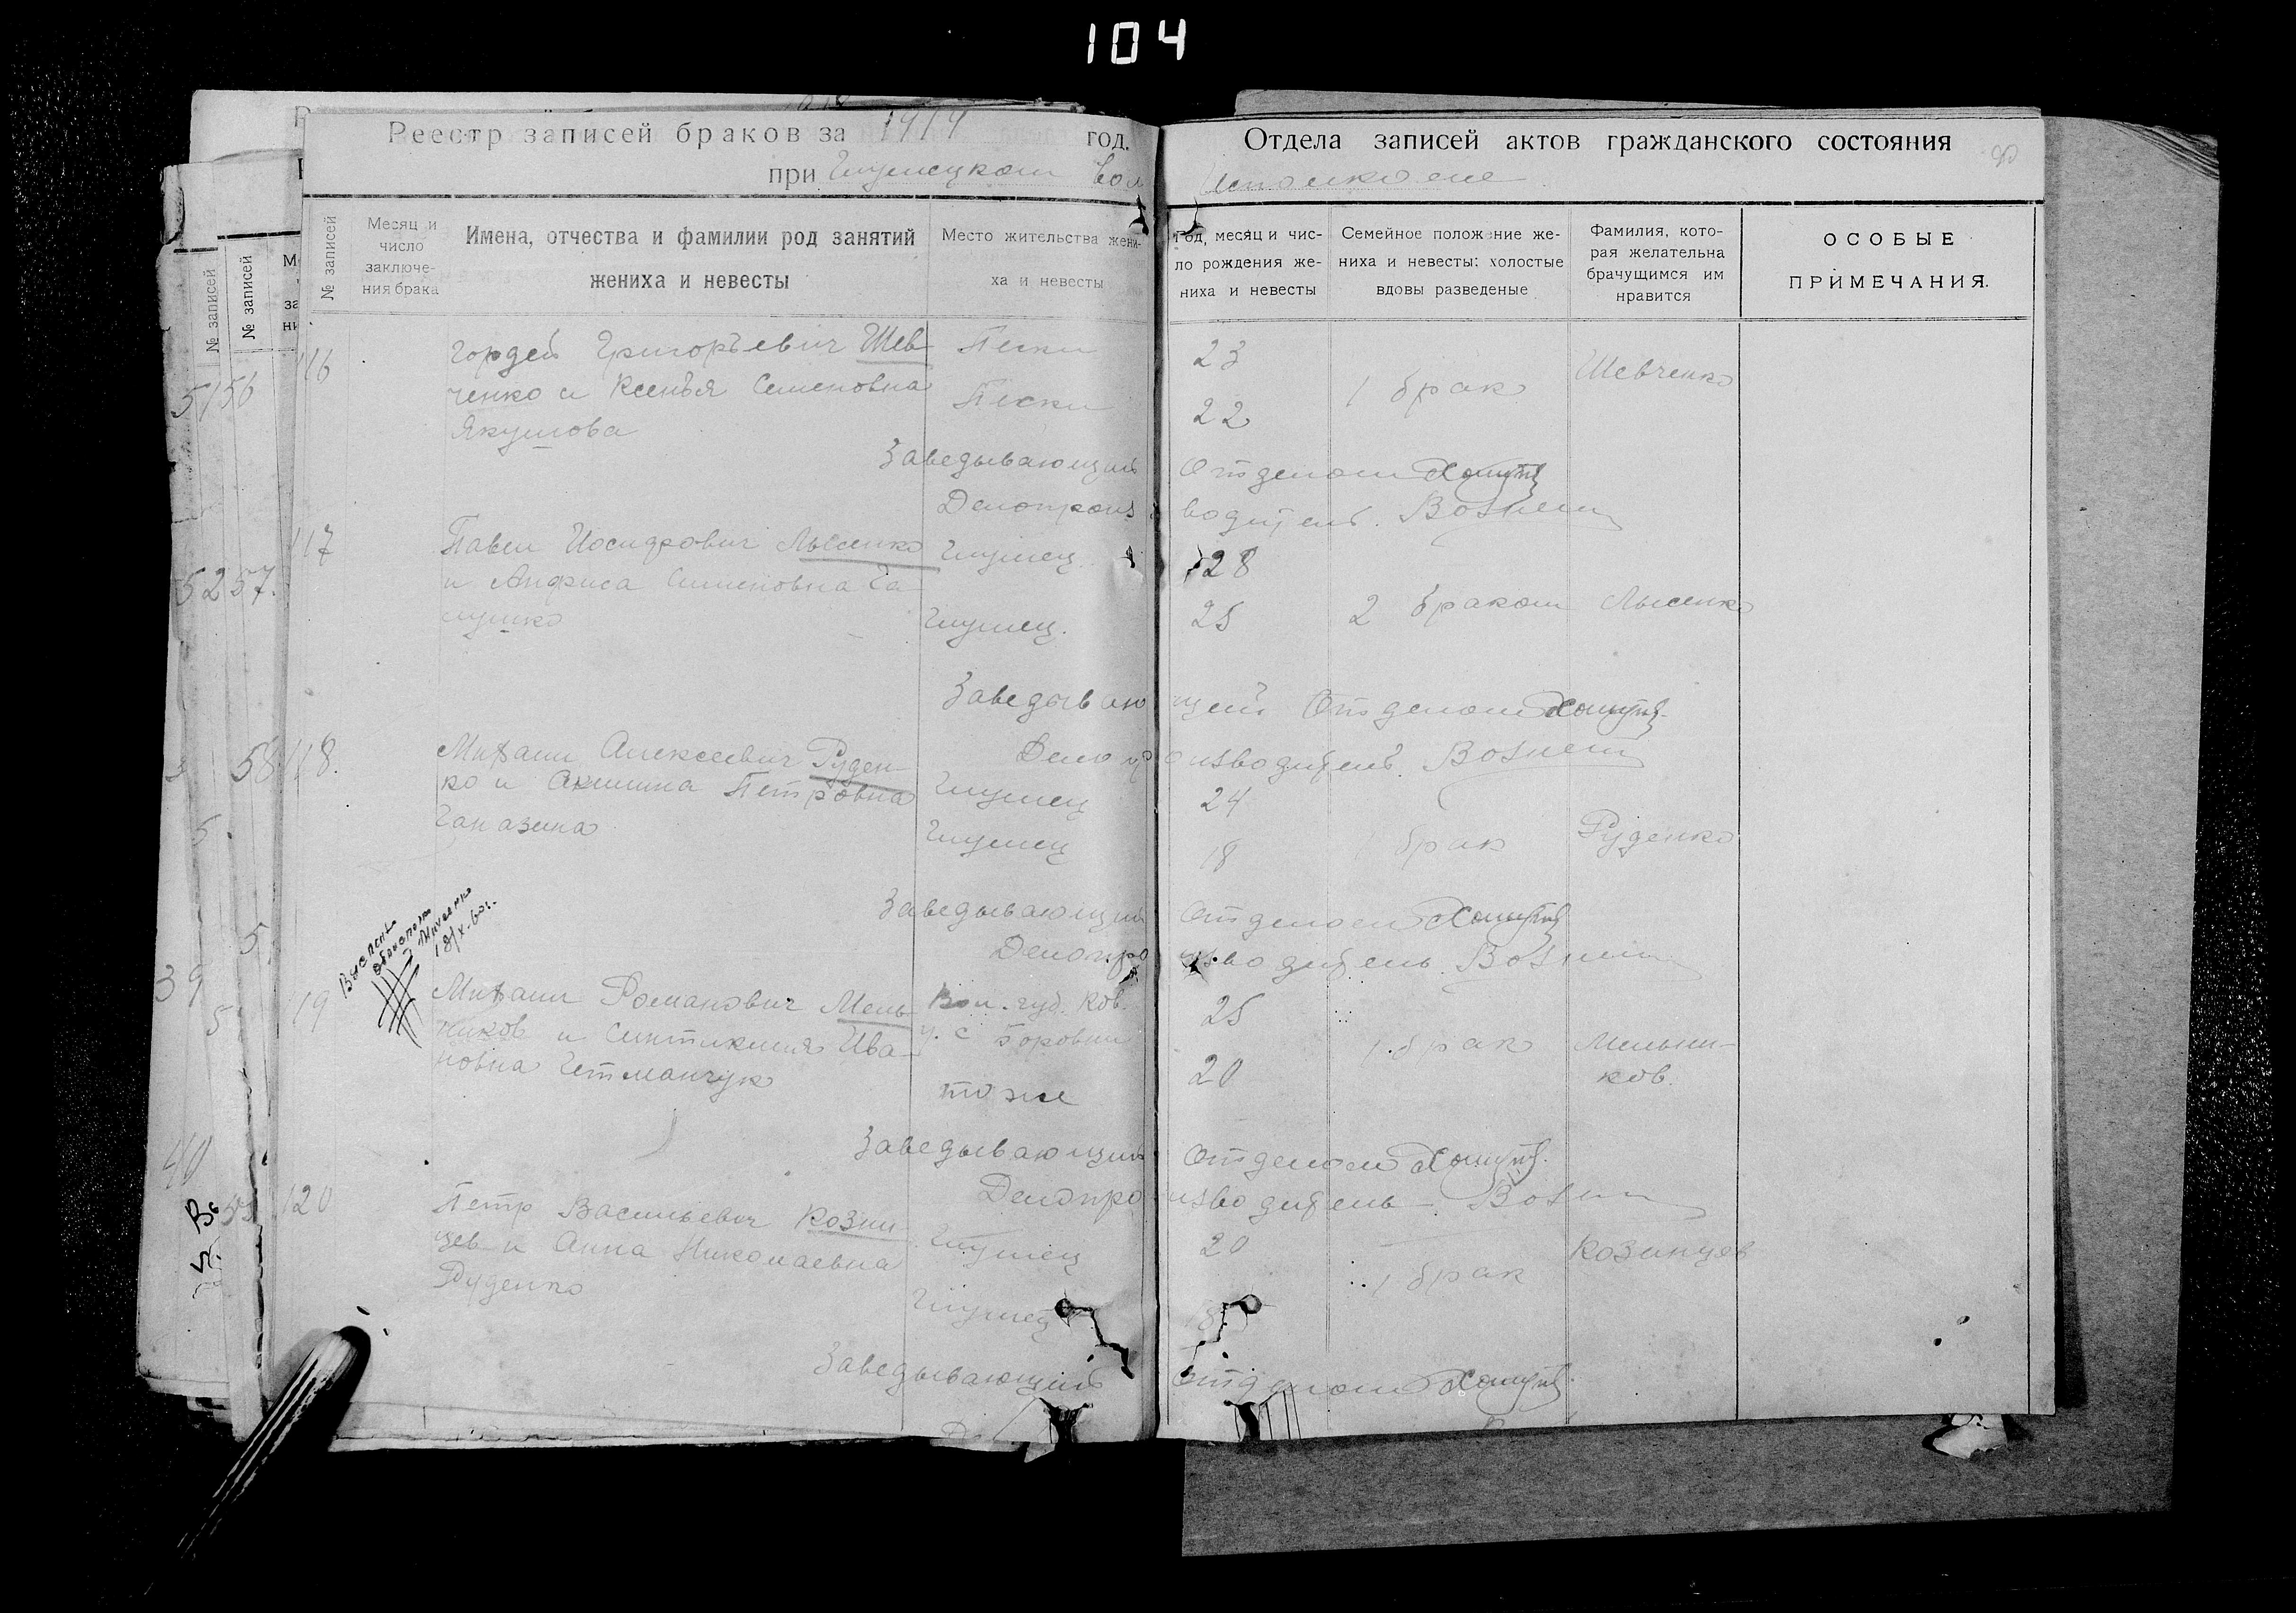 104
Реестр записей браков за 1919 год.
при Глушецком вол
Отдела записей актов гражданского состояния
Исполкоме
№ записей
№ записей
№ записей
Месяц и число заключения брака
Имена, отчества и фамилии род занятий жениха и невесты
Место жительства жениха и невесты
Год, месяц и число рождения жениха и невесты
Семейное положение жениха и невесты: холостые вдовы разведеные
Фамилия, которая желательна брачущимся им нравится
ОСОБЫЕ ПРИМЕЧАНИЯ.
116
Гордей Григорьевич Шев
ченко и Ксенья Семеновна
Якушова
Пески
Пески
23
22
1 брак
Шевченко
Заведывающий Отделом
Делопроизводитель.
117
Павел Иосифович Лысенко
и Анфиса Семеновна Га
лушко
Глушец.
Глушец.
28
25
2 браком
Лысенко
Заведывающей Отделом
Делопроизводитель.
118.
Михаил Алексеевич Руден
ко и Акилина Петровна
Глушец
Глушец
24
18
брак
Руденко
Заведывающий Отделом
Делопроизводитель
119
Михаил Романович Мель
ников и Синтикия Ива
новна Гетманчук
Вол. губ. Ков.
у. с Боровни
тоже
25
20
1 брак
Мельни-
ков.
Заведывающий Отделом
Делопроизводитель
120
Петр Васильевич Козин
цев и Анна Николаевна
Руденко
Глушец
Глушец
20
18
1 брак
Козинцев
Заведывающий Отделом
51
56
52
57.
58
5
39
40